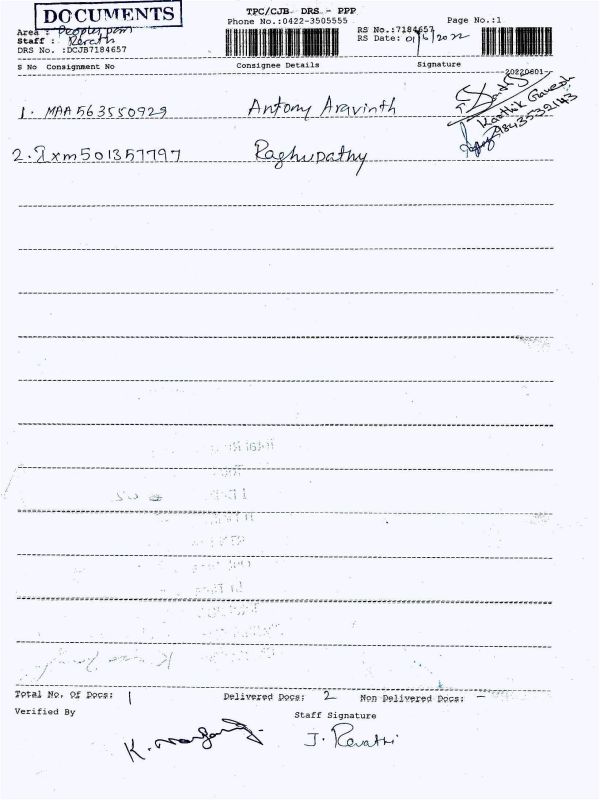 DOCUMENTS
TPC/CJB DRS - PPP
Phone No.:0422-3505555
Page No.:1
Area :
Staff : Revathi
DRS No. :DCJB7184657
RS No.:7184657
RS Date: 01/6/2022
S No Consignment No Consignee Details Signature
20220601-
1. MAA563550929 Antony Aravinth
Karthik Ganesh
9843539143
2. Txm501357797 Raghupathy
Total No. Of Docs: 1 Delivered Docs: 2 Non Delivered Docs: -
Verified By Staff Signature
J. Revathi